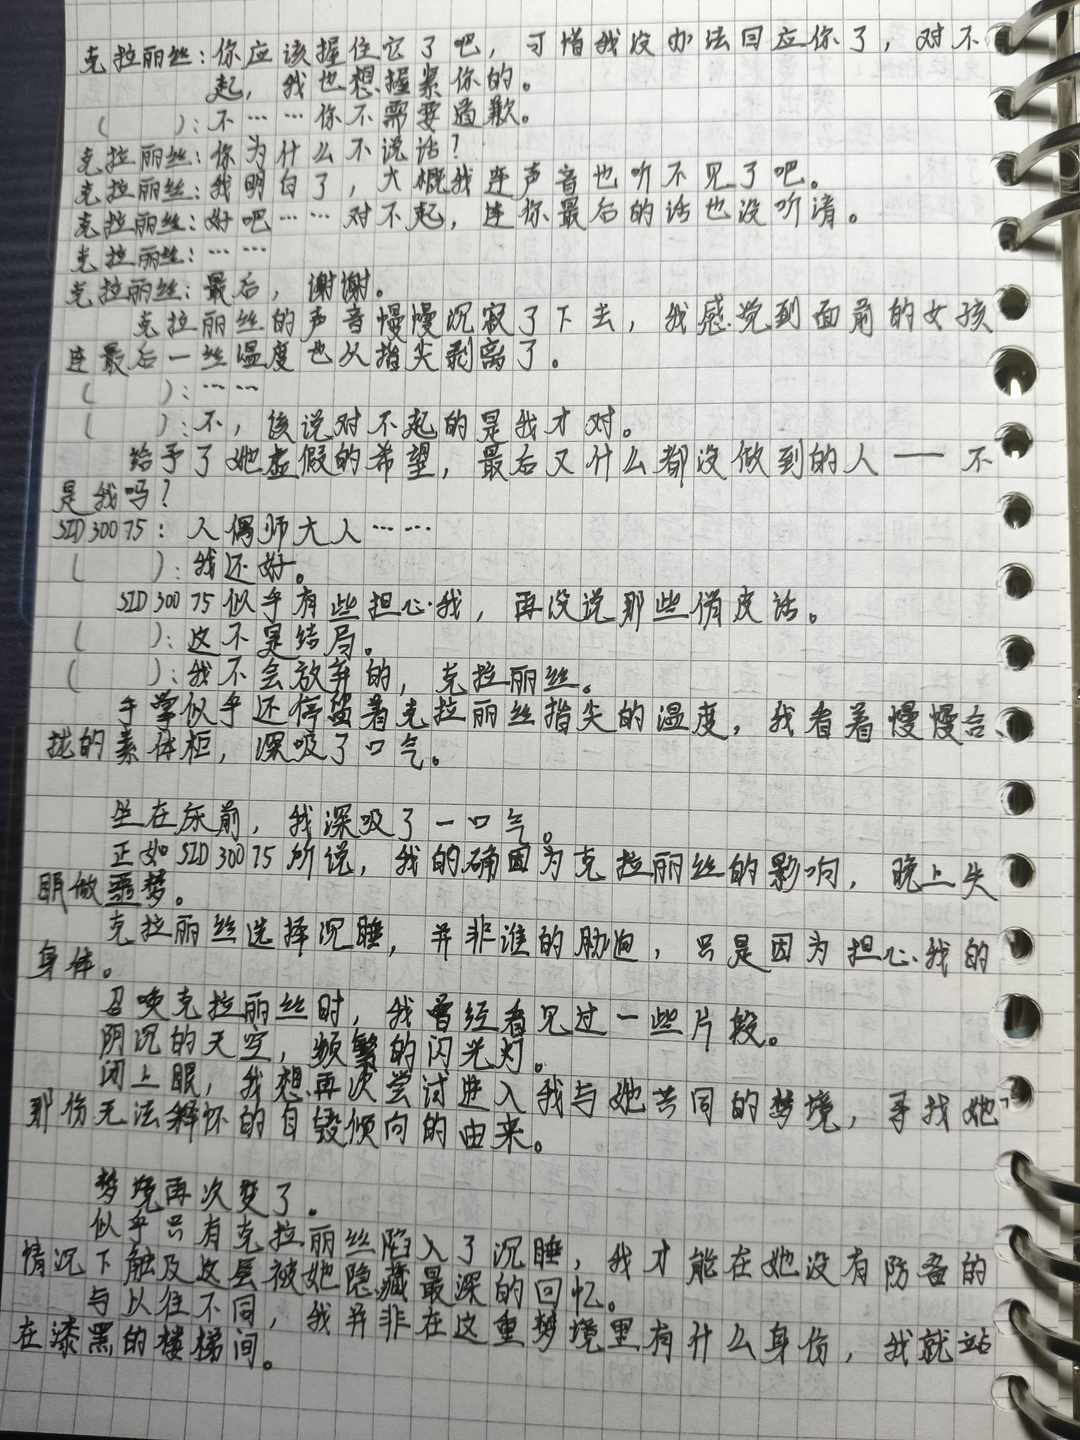 克拉丽丝：你应该握住它了吧，可惜我没办法回应你了，对不
起，我也想握紧你的。
（　　）：不……你不需要道歉。
克拉丽丝：你为什么不说话？
克拉丽丝：我明白了，大概我连声音也听不见了吧。
克拉丽丝：好吧……对不起，连你最后的话也没听清。
克拉丽丝：……
克拉丽丝：最后，谢谢。
克拉丽丝的声音慢慢沉寂了下去，我感觉到面前的女孩
连最后一丝温度也从指尖剥离了。
（　　）：……
（　　）：不，该说对不起的是我才对。
给予了她虚假的希望，最后又什么都没做到的人——不
是我吗？
SID30075：人偶师大人……
（　　）：我还好。
SID30075似乎有些担心我，再没说那些俏皮话。
（　　）：这不是结局。
（　　）：我不会放弃的，克拉丽丝。
手掌似乎还停留着克拉丽丝指尖的温度，我看着慢慢合
拢的素体柜，深吸了口气。
坐在床前，我深吸了一口气。
正如SID30075所说，我的确因为克拉丽丝的影响，晚上失
眠做噩梦。
克拉丽丝选择沉睡，并非谁的胁迫，只是因为担心我的
身体。
召唤克拉丽丝时，我曾经看见过一些片段。
阴沉的天空，频繁的闪光灯。
闭上眼，我想再次尝试进入我与她共同的梦境，寻找她
那份无法释怀的自毁倾向的由来。
梦境再次变了。
似乎只有克拉丽丝陷入了沉睡，我才能在她没有防备的
情况下触及这层被她隐藏最深的回忆。
与以往不同，我并非在这重梦境里有什么身份，我就站
在漆黑的楼梯间。